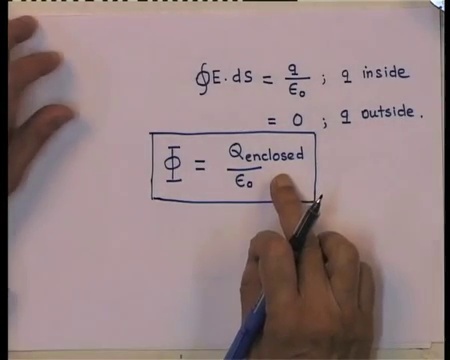 ∮E.dS = q/ϵ₀ ; q inside
= 0 ; q outside.
Φ = Qenclosed/ϵ₀